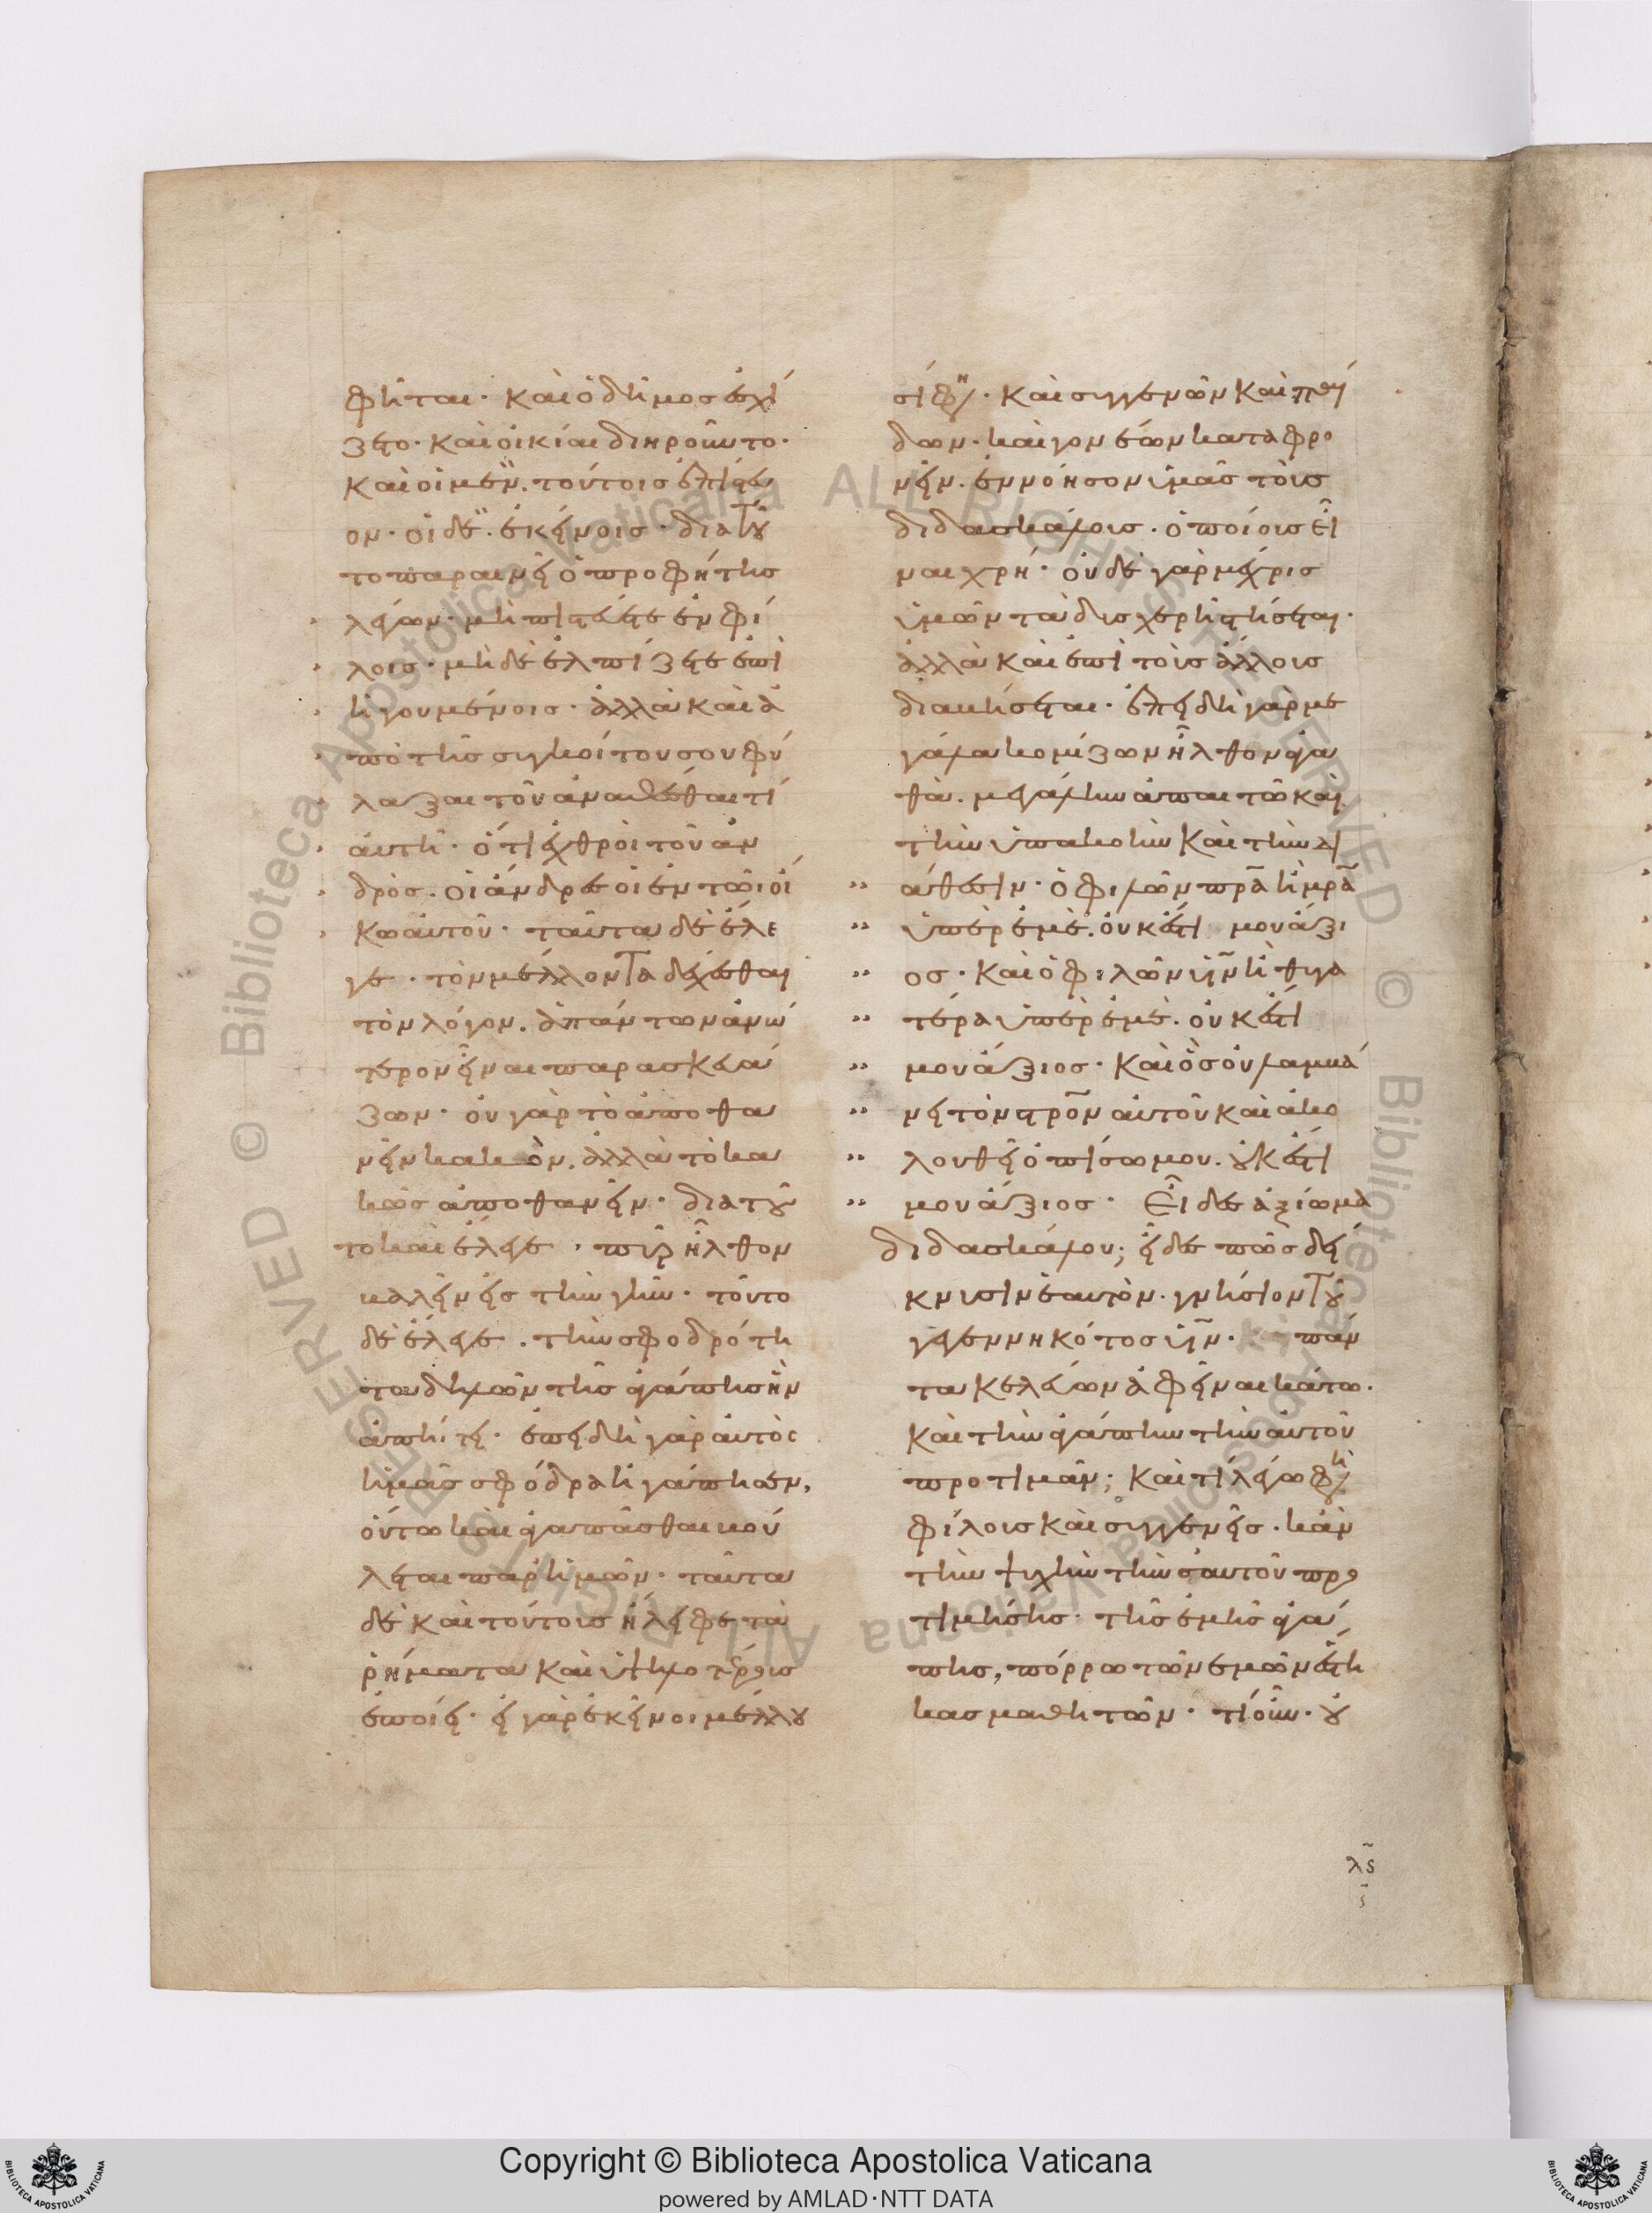 φῆται· καὶ ὁ δῆμος ἐσχί
ζετο· καὶ οἰκίαι διηροῦντο·
καὶ οἱ μὲν· τούτοις ἐπίστευ
ον· οἱ δὲ· ἐκείνοις· διατοῦ
το παραινεῖ ὁ προφήτης
λέγων· μὴ πιστεύετε ἐν φί
λοις· μὴ δὲ ἐλπίζετε ἐπὶ
ἡγουμένοις· ἀλλὰ καὶ ἀ
πὸ τῆς συγκοίτου σου φύ
λαξαι τοῦ ἀναθέσθαι τί
αὐτῆ· ὅτι ἐχθροὶ τοῦ ἀν
δρὸς. οἱ ἄνδρες οἱ ἐν τῶι οἴ
κω αὐτοῦ· ταῦτα δὲ ἔλε
γε. τὸν μέλλοντα δέχεσθαι
τὸν λόγον. ἁπάντων ἀνώ
τερον εἶναι παρασκευά
ζων· οὐ γὰρ τὸ ἀποθα
νεῖν κακὸν. ἀλλὰ τὸ κα
κῶς ἀποθανεῖν· διατοῦ
το καὶ ἔλεγε, πῦρ ἦλθον
βαλεῖν εἰς τὴν γῆν· τοῦτο
δὲ ἔλεγε. τὴν σφοδρότη
τα δηλῶν τῆς ἀγάπης ἣν
ἀπήτει· ἐπειδὴ γὰρ αὐτὸς
ἡμᾶς σφόδρα ἠγάπησεν,
οὕτω καὶ ἀγαπᾶσθαι βού
λεται παρ' ἡμῶν· ταῦτα
δὲ καὶ τούτοις ἤλειφε τὰ
ῥήματα καὶ ὑψηλοτέρους
ἐποίει· εἰ γὰρ ἐκεῖνοι μέλλου
σί φη· καὶ συγγενῶν καὶ παί
δων· καὶ γονέων καταφρο
νεῖν. ἐννόησον ὑμᾶς τοὺς
διδασκάλους. ὁποίους εἶ
ναι χρή· οὐδὲ γὰρ μέχρις
ὑμῶν τὰ δυσχερῆ στήσεται·
ἀλλὰ καὶ ἐπὶ τοὺς ἄλλους
διαβήσεται· ἐπειδὴ γὰρ με
γάλα κομίζων ἦλθον ἀγα
θὰ. μεγάλην ἀπαιτῶ καὶ
τὴν ὑπακοὴν καὶ τὴν δι
άθεσιν· ὁ φιλῶν πρα ἢ μρα
ὑπὲρ ἐμὲ. οὐκ ἔστι μου ἄξι
ος· καὶ ὁ φιλῶν υἱν ἢ θυγα
τέρα ὑπὲρ ἐμὲ. οὐκ ἔστι
μου ἄξιος· καὶ ὃς οὐ λαμβά
νει τὸν στρον αὐτοῦ καὶ ἀκο
λουθεῖ ὀπίσω μου. οὐκ ἔστι
μου ἄξιος· Εἶδες ἀξίωμα
διδασκάλου; εἶδες πῶς δεί
κνυσιν ἑαυτὸν. γνήσιον τοῦ
γεγεννηκότος υἱν· πάν
τα κελεύων ἀφεῖναι κάτω.
καὶ τὴν ἀγάπην τὴν αὐτοῦ
προτιμᾶν; καὶ τί λέγω φη
φίλους καὶ συγγενεῖς. κἂν
τὴν ψυχὴν τὴν σαυτοῦ προ
τιμήσης· τῆς ἐμῆς ἀγά
πης, πόρρω τῶν ἐμῶν ἕστη
κας μαθητῶν· τί οὖν· οὐ
λς
Copyright © Biblioteca Apostolica Vaticana
powered by AMLAD·NTT DATA